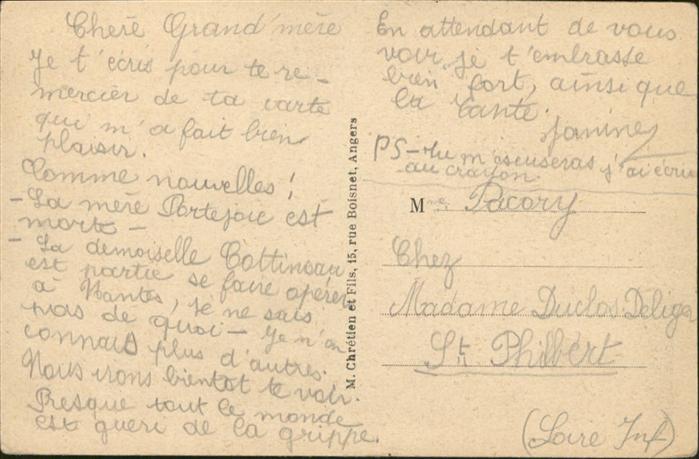 Cherè Grand'mère
Je t'écris pour te re-
mercier de ta carte
qui m'a fait bien
plaisir.
Comme nouvelles!
- La mère Portejoie est
morte -
- La demoiselle Cottineau
est partie se faire opérer
à Nantes, je ne sais
pas de quoi - Je n'en
connais plus d'autres.
Nous irons bientot te voir.
Presque tout le monde
est guéri de la grippe.
En attendant de vous
voir, je t'embrasse
bien fort, ainsi que
la tante.
Janine
PS - tu m'escuseras j'ai écrit
au crayon.
M. Chrétien et Fils, 15, rue Boisnet, Angers
Mme Pacory
Chez
Madame Duclos Deliga
St Philbert
(Loire Inf)